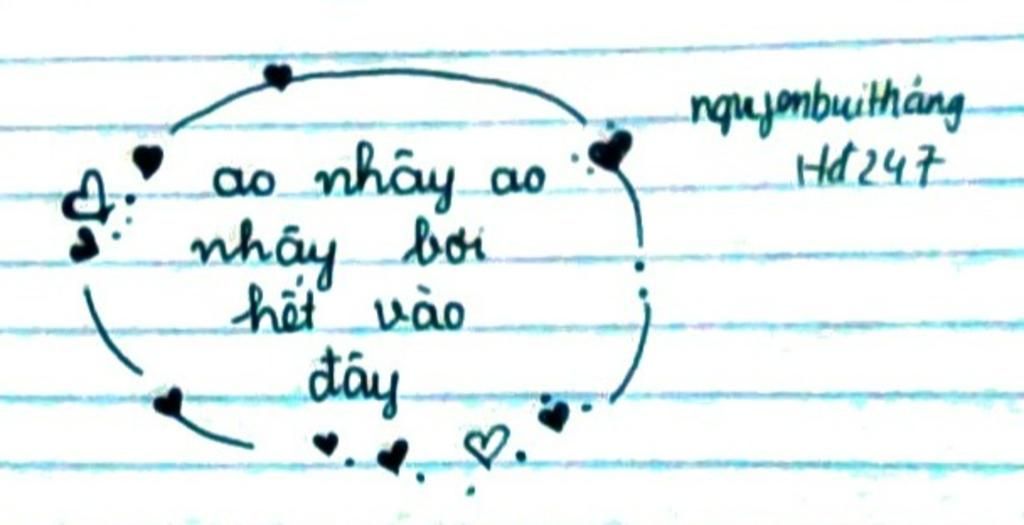 ao nhãy ao
nhãy bơi
hết vào
đây
nguyenbuithắng
Hd247